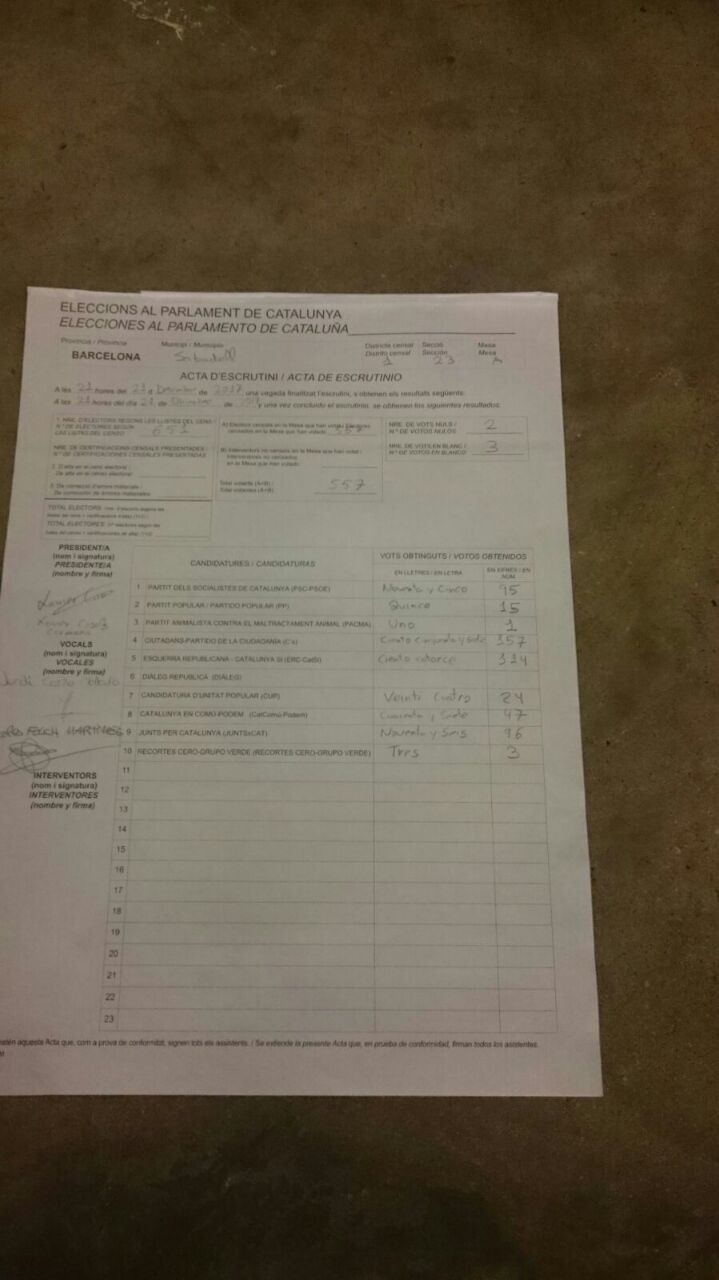 ELECCIONS AL PARLAMENT DE CATALUNYA
ELECCIONES AL PARLAMENTO DE CATALUÑA
Província / Provincia Municipi / Municipio Districte censal Secció Mesa
Distrito censal Sección Mesa
BARCELONA Sabadell 1 23 A
ACTA D'ESCRUTINI / ACTA DE ESCRUTINIO
A les 21 hores del 21 d Diciembre de 2017, una vegada finalitzat l'escrutini, s'obtenen els resultats següents:
A las 21 horas del día 21 de Diciembre de 2017 y una vez concluido el escrutinio, se obtienen los siguientes resultados:
1. NRE. D'ELECTORS SEGONS LES LLISTES DEL CENS /
N.º DE ELECTORES SEGÚN
LAS LISTAS DEL CENSO 651
NRE. DE CERTIFICACIONS CENSALS PRESENTADES /
N.º DE CERTIFICACIONES CENSALES PRESENTADAS
2. D'alta en el cens electoral /
De alta en el censo electoral
3. De correcció d'errors materials /
De corrección de errores materiales
TOTAL ELECTORS
TOTAL ELECTORES
A) Electors censats en la Mesa que han votat / Electores
censados en la Mesa que han votado 557
B) Interventors no censats en la Mesa que han votat /
Interventores no censados
en la Mesa que han votado
Total votants (A+B) /
Total votantes (A+B) 557
NRE. DE VOTS NULS /
N.º DE VOTOS NULOS 2
NRE. DE VOTS EN BLANC /
N.º DE VOTOS EN BLANCO 3
PRESIDENT/A
(nom i signatura)
PRESIDENTE/A
(nombre y firma)
VOCALS
(nom i signatura)
VOCALES
(nombre y firma)
INTERVENTORS
(nom i signatura)
INTERVENTORES
(nombre y firma)
CANDIDATURES / CANDIDATURAS VOTS OBTINGUTS / VOTOS OBTENIDOS
EN LLETRES / EN LETRA EN XIFRES / EN NÚM.
1 PARTIT DELS SOCIALISTES DE CATALUNYA (PSC-PSOE) Noventa y Cinco 95
2 PARTIT POPULAR / PARTIDO POPULAR (PP) Quince 15
3 PARTIT ANIMALISTA CONTRA EL MALTRACTAMENT ANIMAL (PACMA) Uno 1
4 CIUTADANS-PARTIDO DE LA CIUDADANÍA (C's) Ciento cincuenta y siete 157
5 ESQUERRA REPUBLICANA - CATALUNYA SÍ (ERC-CatSí) Ciento catorce 114
6 DIÀLEG REPUBLICÀ (DIÀLEG)
7 CANDIDATURA D'UNITAT POPULAR (CUP) Veinti Cuatro 24
8 CATALUNYA EN COMÚ-PODEM (CatComú-Podem) Cuarenta y Siete 47
9 JUNTS PER CATALUNYA (JUNTSxCAT) Noventa y Seis 96
10 RECORTES CERO-GRUPO VERDE (RECORTES CERO-GRUPO VERDE) Tres 3
11
12
13
14
15
16
17
18
19
20
21
22
23
aquesta Acta que, com a prova de conformitat, signen tots els assistents. / Se extiende la presente Acta que, en prueba de conformidad, firman todos los asistentes.